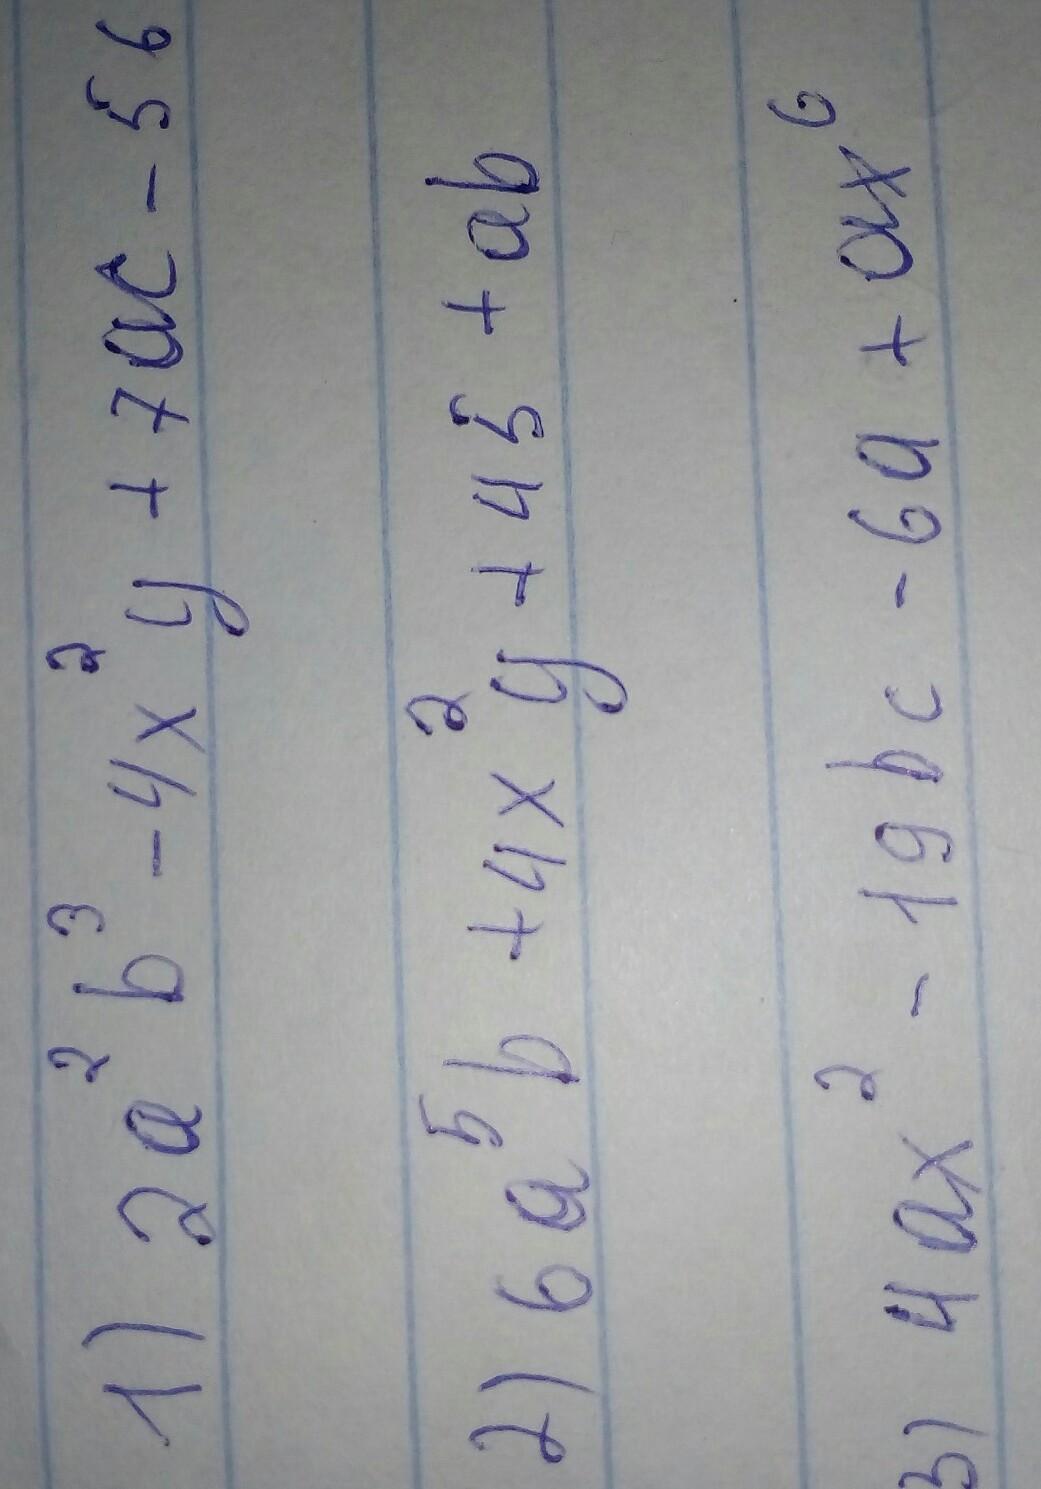 1) 2a²b³ - 4x²y + 7ac - 56
2) 6a⁵b + 4x²y + 45 + ab
3) 4ax² - 19bc - 6a + ax⁶